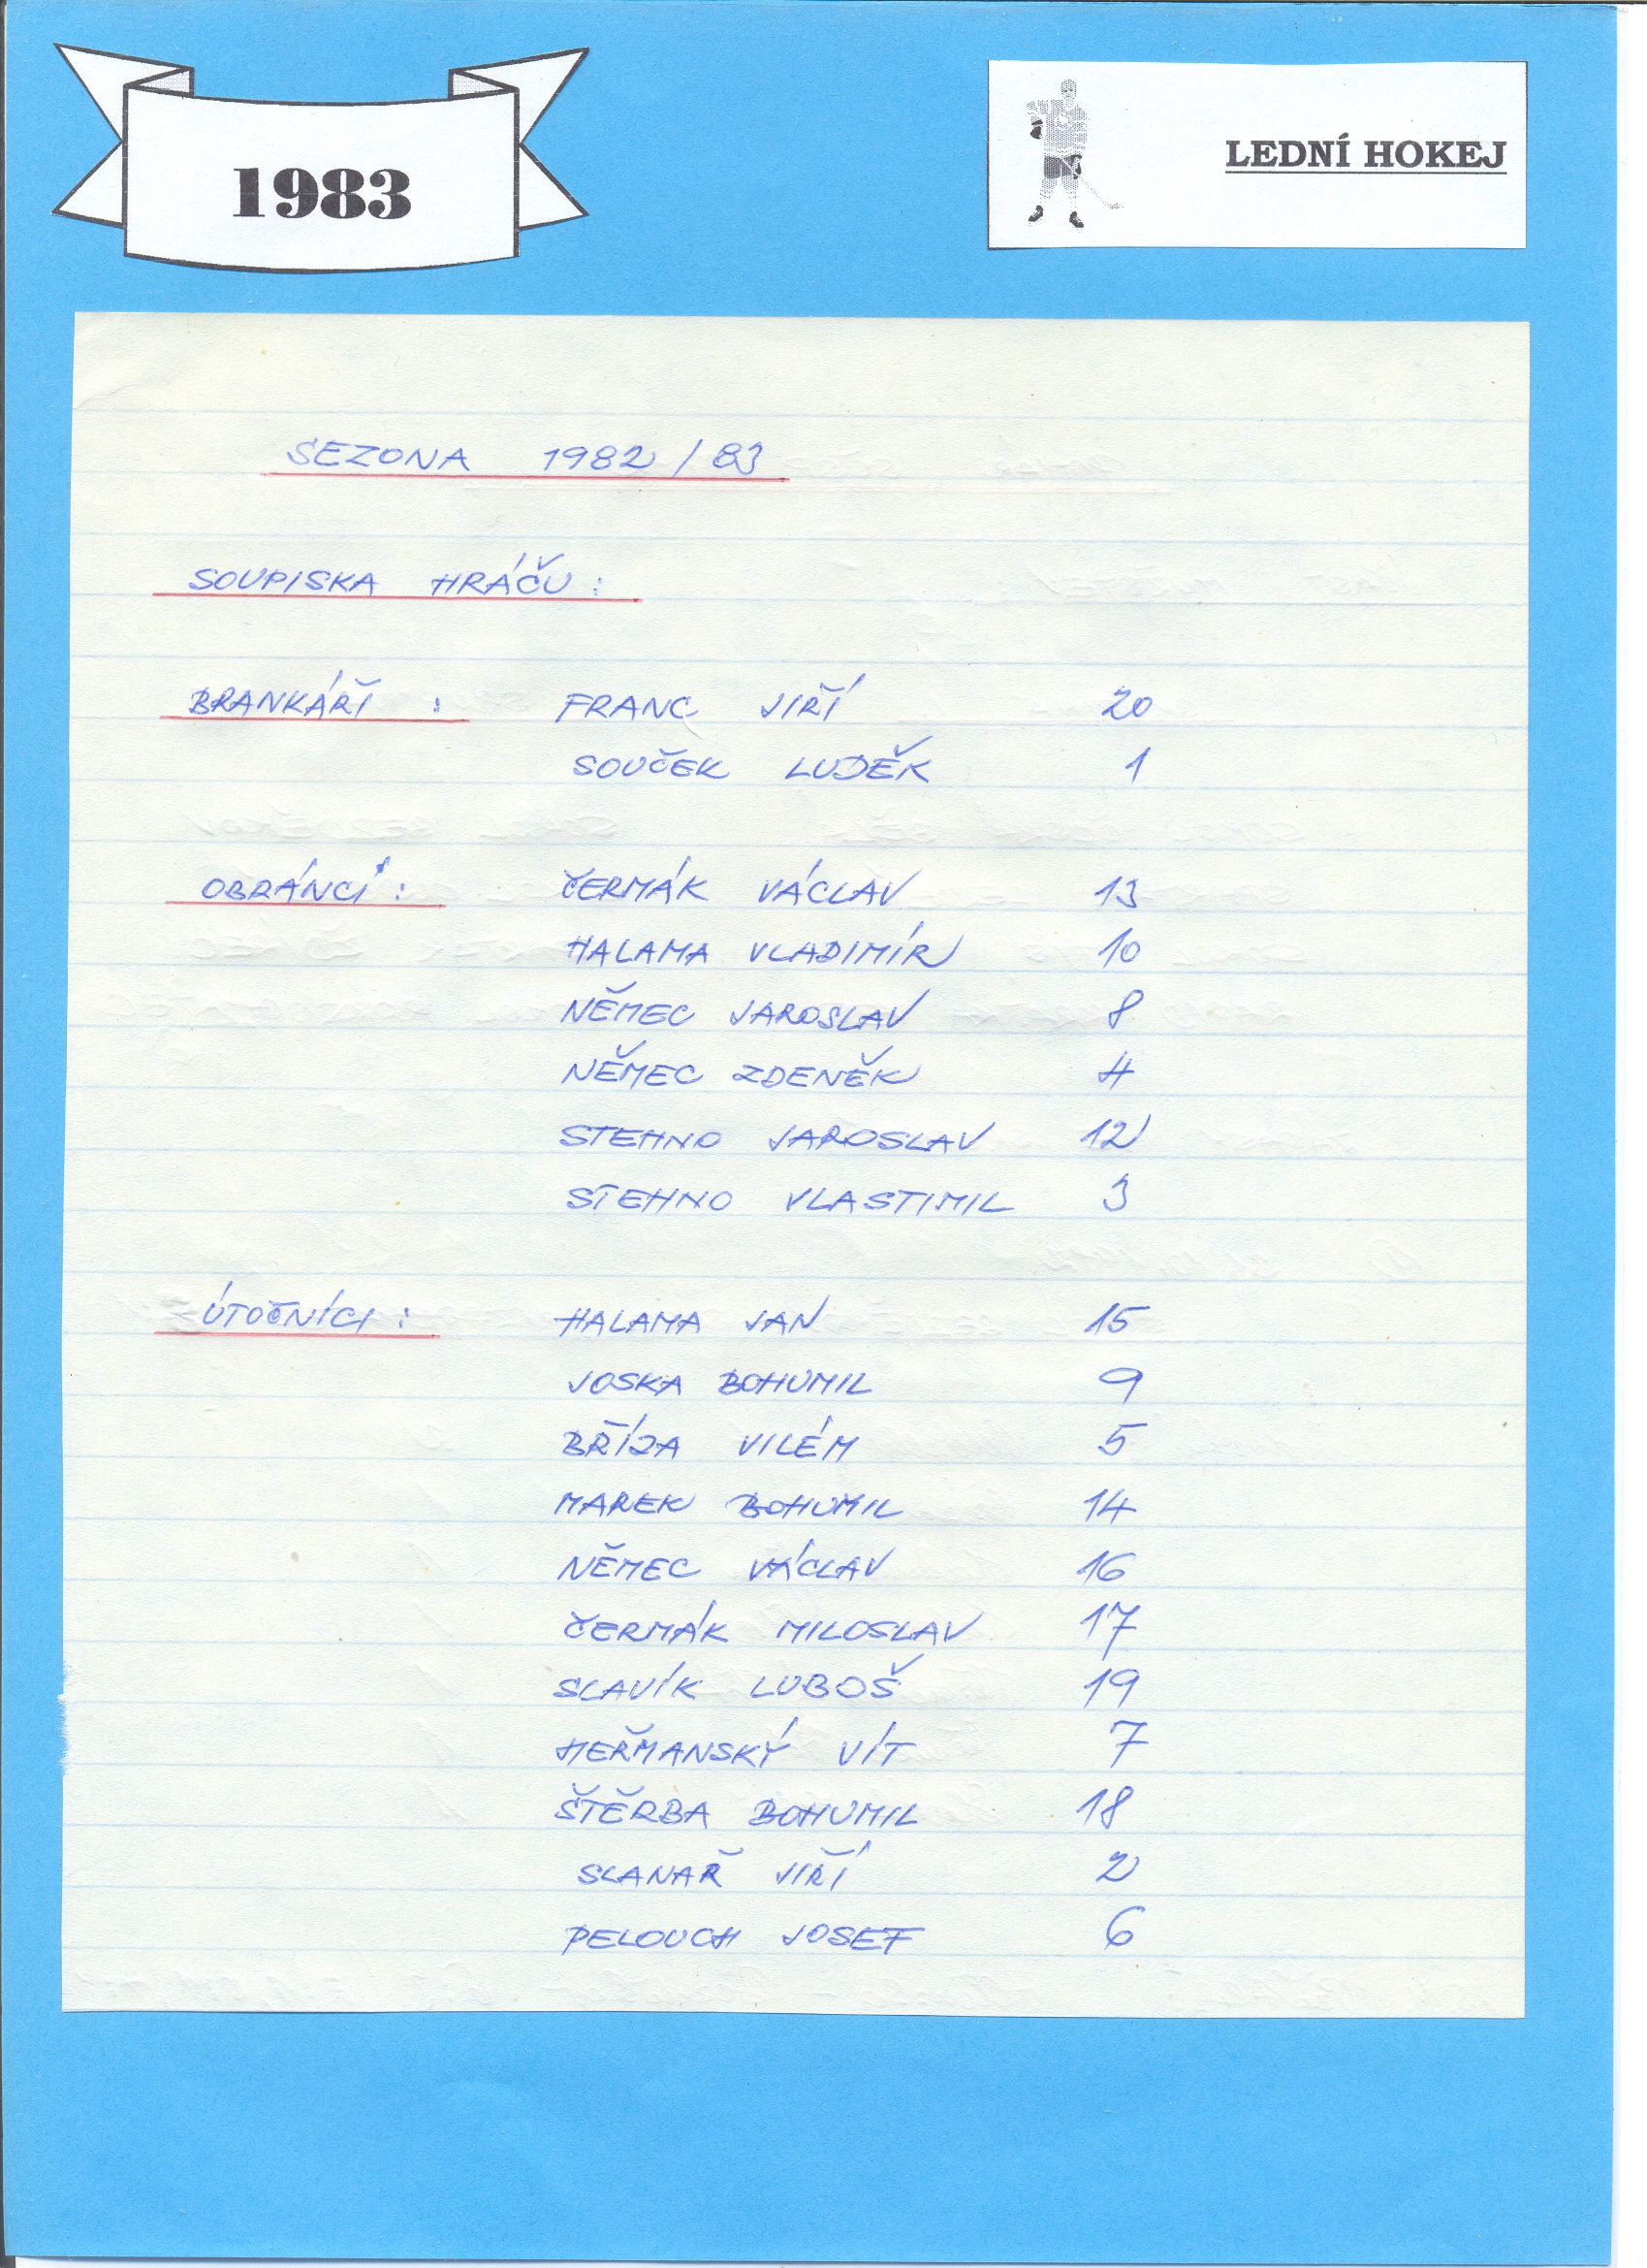 1983
LEDNÍ HOKEJ
SEZONA 1982/83
SOUPISKA HRÁČU:
BRANKÁŘI: FRANC JIŘÍ 20
SOUČEK LUDĚK 1
OBRÁNCI: ČERMÁK VÁCLAV 13
HALAMA VLADIMÍR 10
NĚMEC JAROSLAV 8
NĚMEC ZDENĚK 4
STEHNO JAROSLAV 12
STEHNO VLASTIMIL 3
ÚTOČNÍCI: HALAMA JAN 15
JOSKA BOHUMIL 9
BŘÍZA VILÉM 5
MAREK BOHUMIL 14
NĚMEC VÁCLAV 16
ČERMÁK MILOSLAV 17
SLAVÍK LUBOŠ 19
HEŘMANSKÝ VÍT 7
ŠTĚRBA BOHUMIL 18
SLANAŘ JIŘÍ 2
PELOUCH JOSEF 6